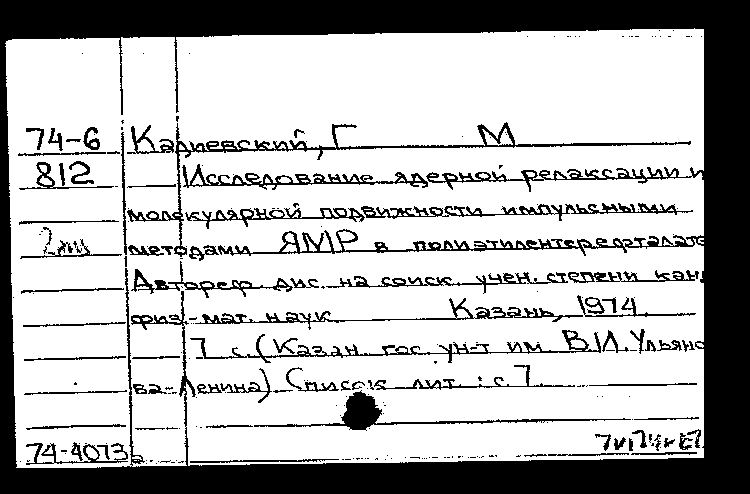 74-6 Кадиевский, Г М
812 Исследование ядерной релаксации и
молекулярной подвижности импульсными
методами ЯМР в полиэтилентерефталате
Автореф. дис. на соиск. учен. степени кан
физ.-мат. наук. Казань, 1974.
7 с. (Казан. гос. ун-т им. В.И. Ульяно
ва-Ленина). Список лит.: с. 7.
74-4073